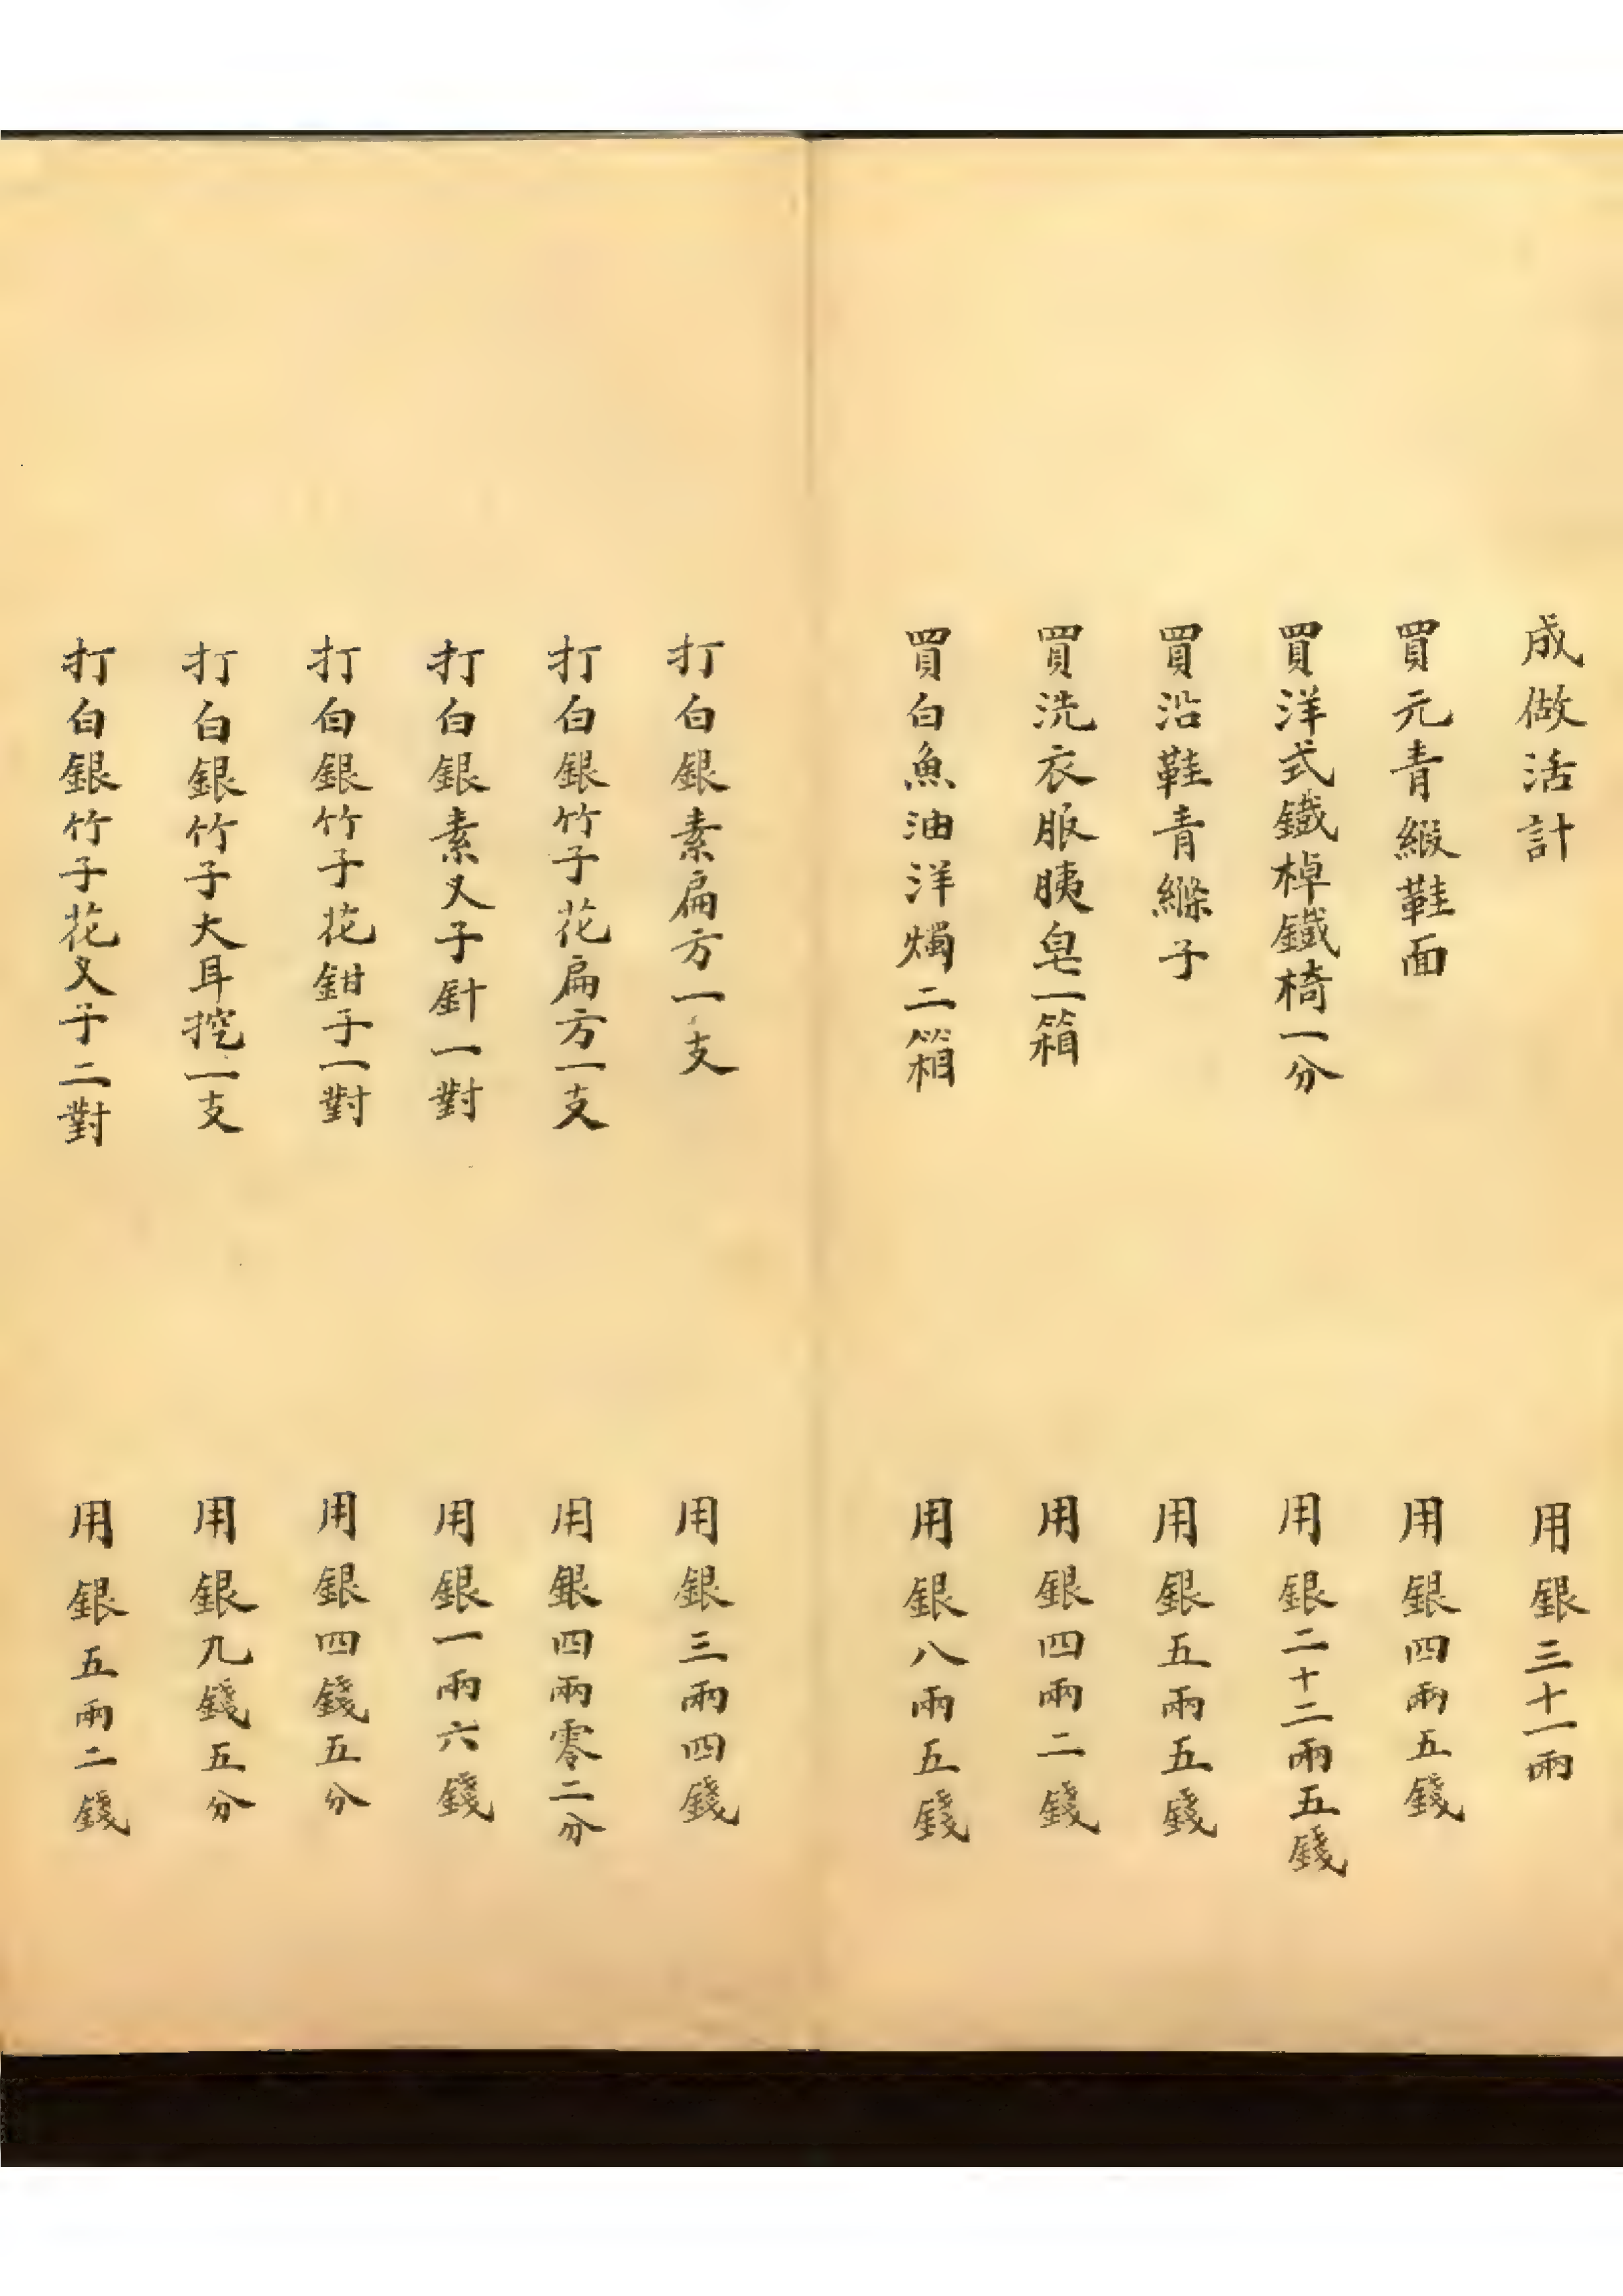 成做活計　用銀三十一兩
買元青緞鞋面　用銀四兩五錢
買洋式鐵棹鐵椅一分　用銀二十二兩五錢
買沿鞋青縧子　用銀五兩五錢
買洗衣服胰皂一箱　用銀四兩二錢
買白魚油洋燭二箱　用銀八兩五錢
打白銀素扁方一支　用銀三兩四錢
打白銀竹子花扁方一支　用銀四兩零二分
打白銀素叉子針一對　用銀一兩六錢
打白銀竹子花鉗子一對　用銀四錢五分
打白銀竹子大耳挖一支　用銀九錢五分
打白銀竹子花叉子二對　用銀五兩二錢